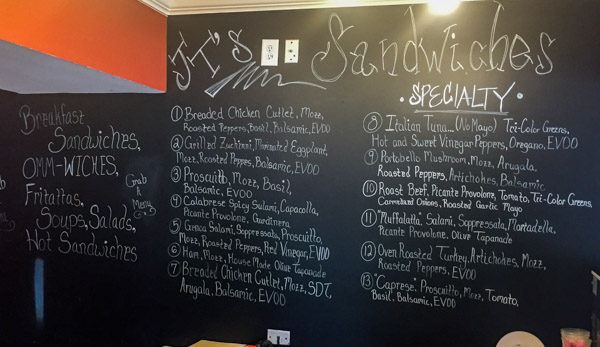 JT's Sandwiches
• SPECIALTY •
Breakfast
Sandwiches,
OMM-WICHES,
Frittattas,
Soups, Salads,
Hot Sandwiches
Grab
A
Menu
① Breaded Chicken Cutlet, Mozz,
Roasted Peppers, Basil, Balsamic, EVOO
② Grilled Zucchini, Marinated Eggplant,
Mozz, Roasted Peppers, Balsamic, EVOO
③ Prosciutto, Mozz, Basil,
Balsamic, EVOO
④ Calabrese Spicy Salami, Capacolla,
Picante Provolone, Gardinera
⑤ Genoa Salami, Soppressata, Prosciutto,
Mozz, Roasted Peppers, Red Vinegar, EVOO
⑥ Ham, Mozz, House Made Olive Tapanade
⑦ Breaded Chicken Cutlet, Mozz, SDT,
Arugala, Balsamic, EVOO
⑧ Italian Tuna... (No Mayo) Tri-Color Greens,
Hot and Sweet Vinegar Peppers, Oregano, EVOO
⑨ Portabello Mushroom, Mozz, Arugala,
Roasted Peppers, Artichokes, Balsamic
⑩ Roast Beef, Picante Provolone, Tomato, Tri-Color Greens,
Caramelized Onions, Roasted Garlic Mayo
⑪ "Muffalatta" Salami, Soppressata, Mortadella,
Picante Provolone, Olive Tapanade
⑫ Oven Roasted Turkey, Artichokes, Mozz,
Roasted Peppers, EVOO
⑬ "Caprese" Prosciutto, Mozz, Tomato,
Basil, Balsamic, EVOO